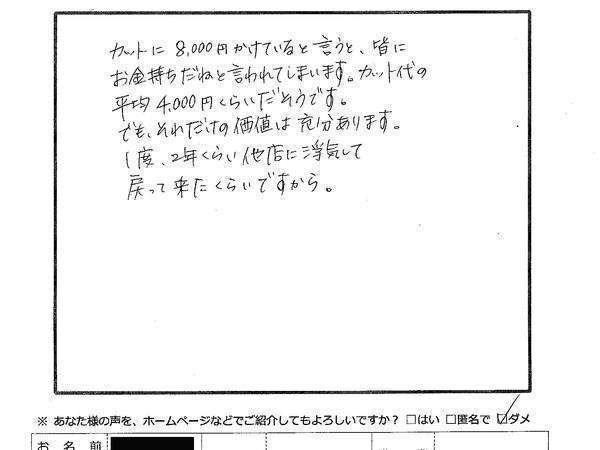 カットに 8,000円かけていると言うと、皆に
お金持ちだねと言われてしまいます。カット代の
平均 4,000円くらいだそうです。
でも、それだけの価値は充分あります。
1度、2年くらい他店に浮気して
戻って来たくらいですから。
※ あなた様の声を、ホームページなどでご紹介してもよろしいですか? □はい □匿名で ☑ダメ
お 名 前